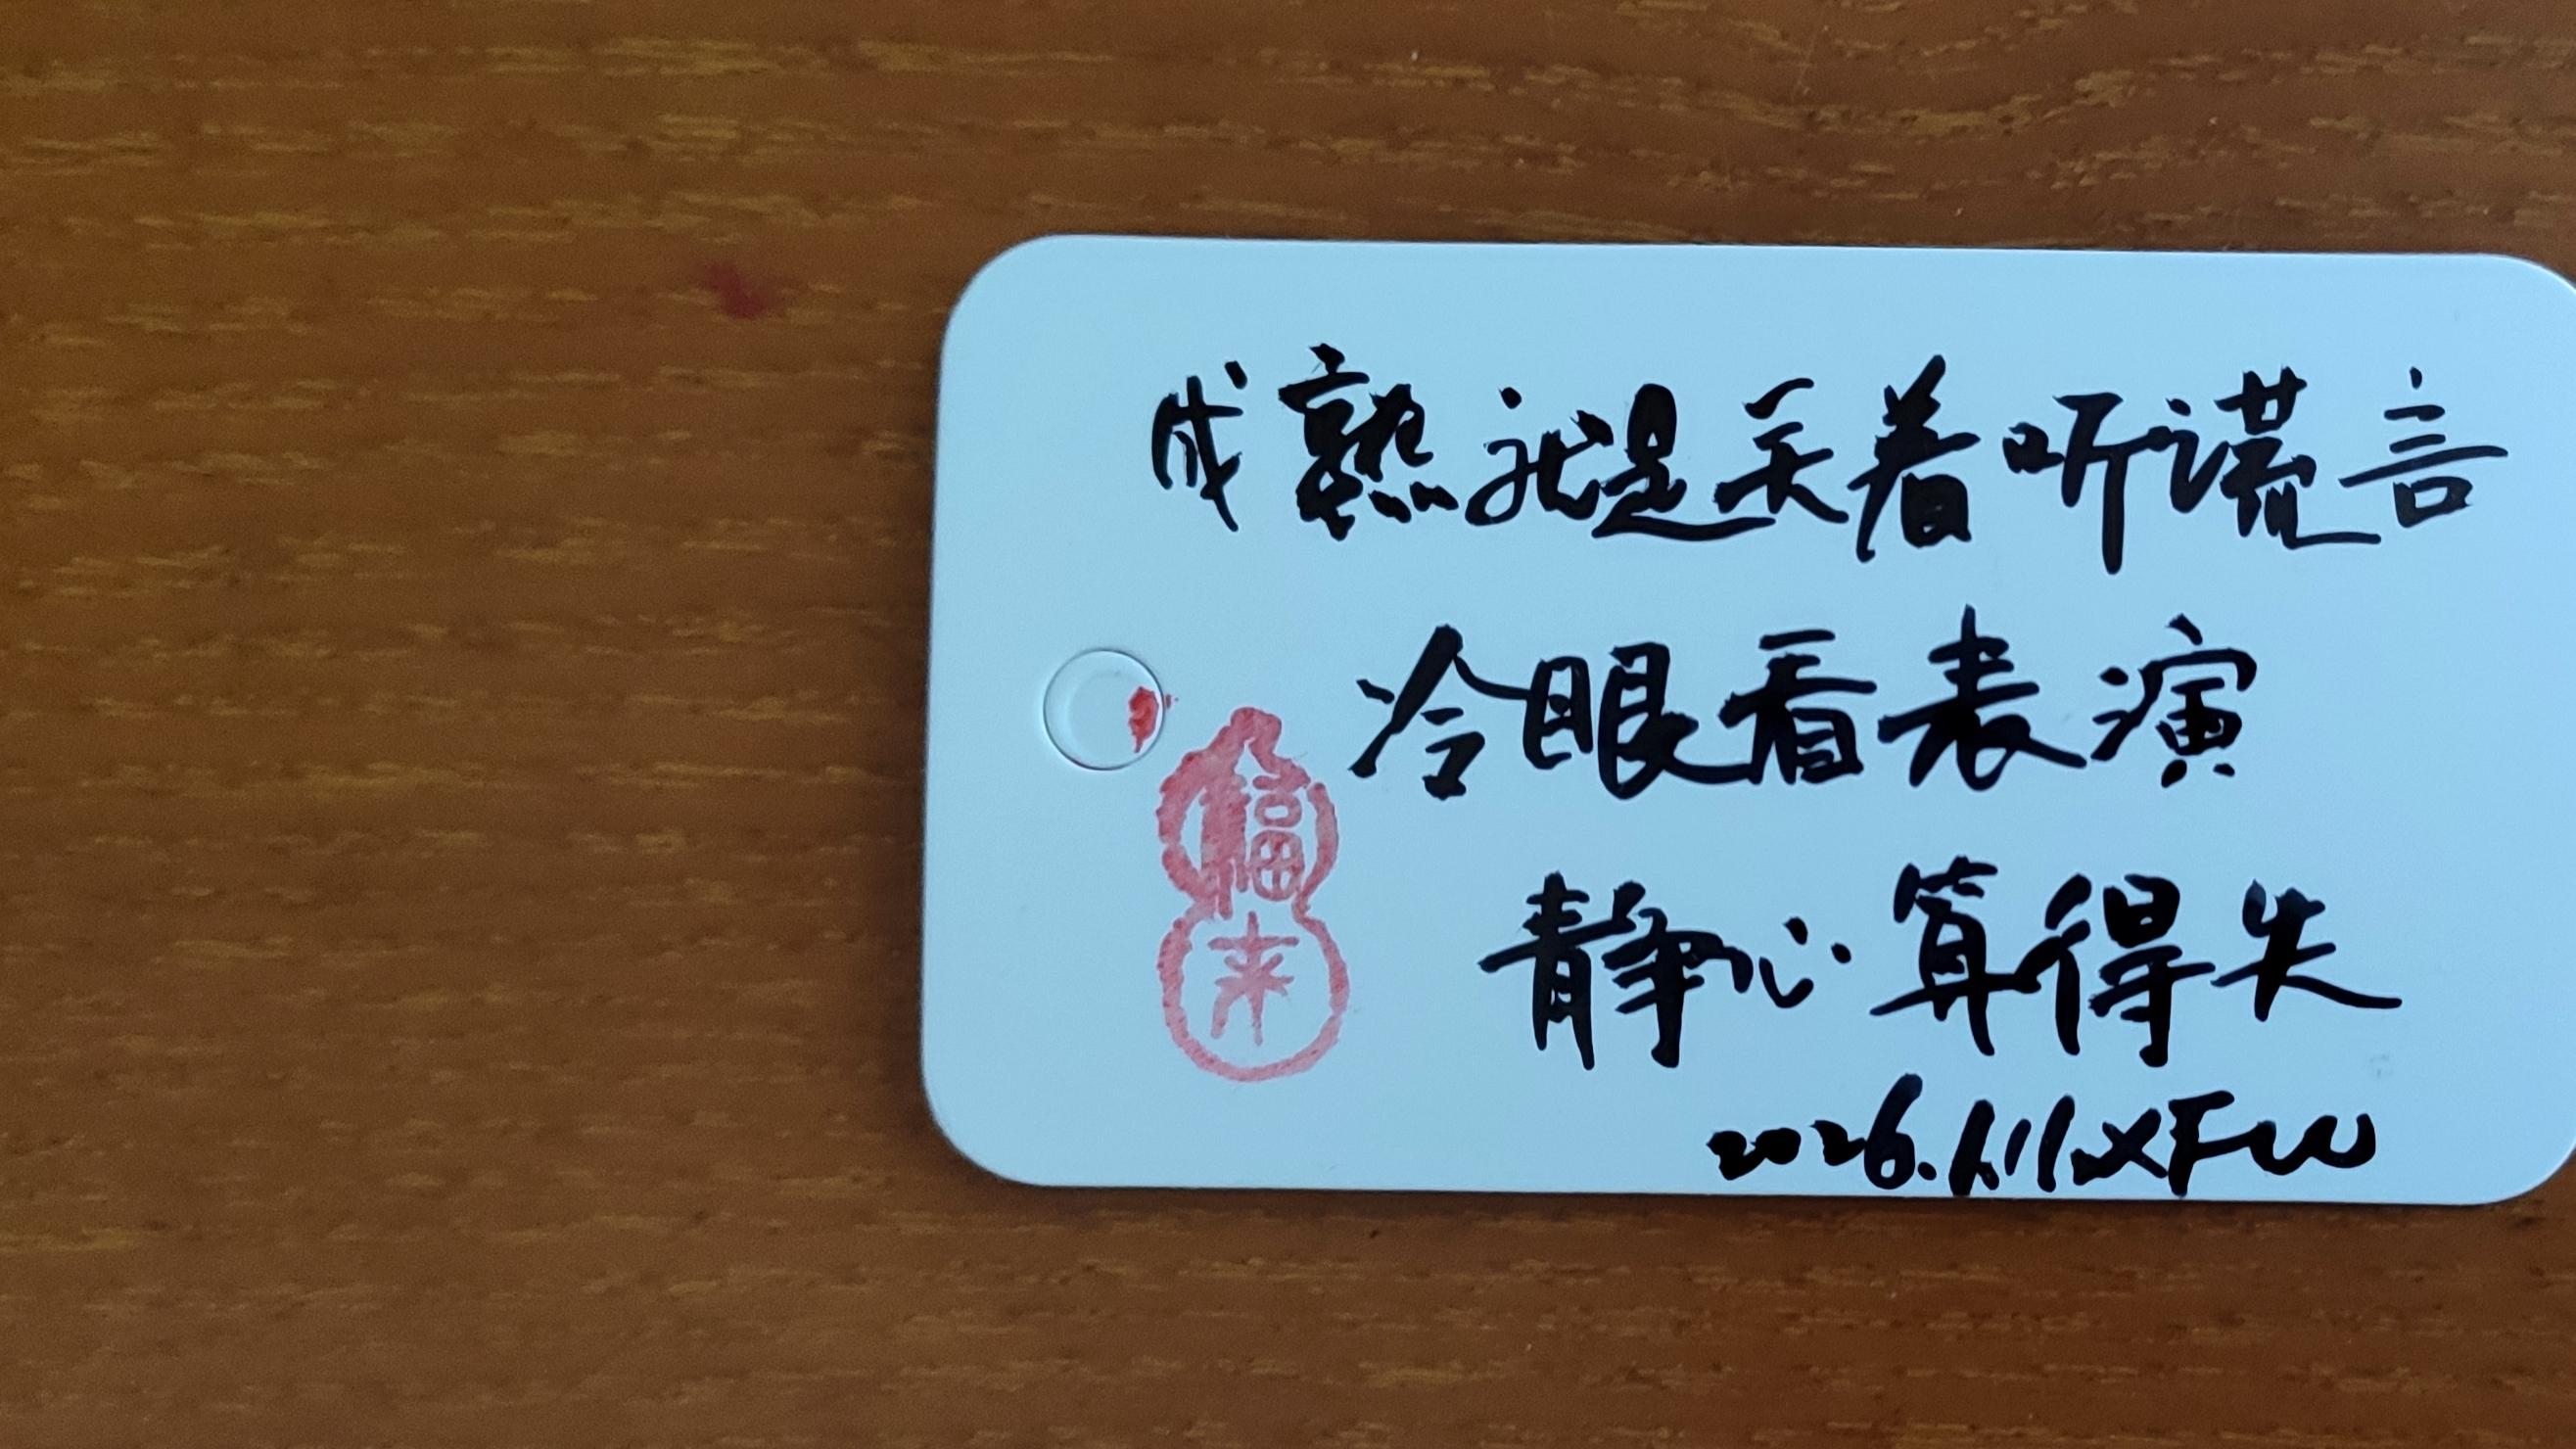 成熟就是笑着听谎言
冷眼看表演
静心算得失
2026.1.11XFW
福来